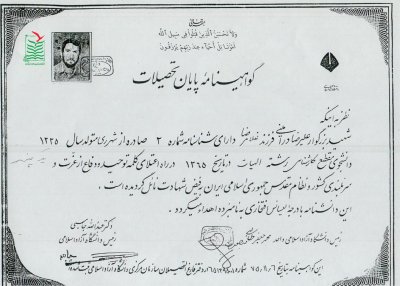 ولا تحسبن الذین قتلوا فی سبیل الله
امواتا بل احیاء عند ربهم یرزقون
گواهینامه پایان تحصیلات
نظر به اینکه
شهید بزرگوار علیرضا فرزند غلامرضا دارای شناسنامه شماره ۲ صادره از شهرری متولد سال ۱۳۳۵
دانشجوی مقطع کارشناسی رشته الهیات در تاریخ ۱۳۶۵ در راه اعتلای کلمه توحید و دفاع از عزت و
سربلندی کشور و نظام مقدس جمهوری اسلامی ایران به فیض شهادت نائل گردیده است .
این دانشنامه با درجه لیسانس افتخاری به نامبرده اهداء میگردد .
دکتر عبدالله جاسبی
رئیس دانشگاه آزاد اسلامی
رئیس دانشگاه آزاد اسلامی واحد
این گواهینامه بتاریخ در دفتر فارغ التحصیلان سازمان مرکزی دانشگاه آزاد اسلامی ثبت شد